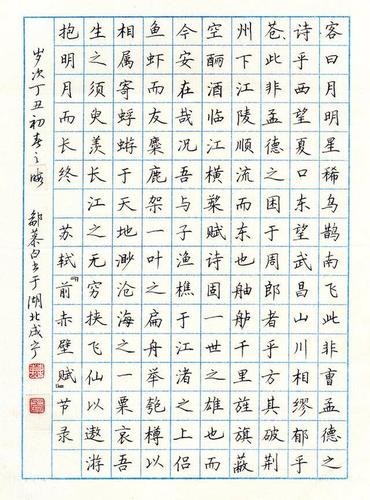 客曰月明星稀乌鹊南飞此非曹孟德之
诗乎西望夏口东望武昌山川相缪郁乎
苍々此非孟德之困于周郎者乎方其破荆
州下江陵顺流而东也舳舻千里旌旗蔽
空酾酒临江横槊赋诗固一世之雄也而
今安在哉况吾与子渔樵于江渚之上侣
鱼虾而友麋鹿架一叶之扁舟举匏樽以
相属寄蜉蝣于天地渺沧海之一粟哀吾
生之须臾羡长江之无穷挟飞仙以遨游
抱明月而长终 苏轼『前赤壁赋』节录
岁次丁丑初春之晚 邹慕白书于湖北咸宁